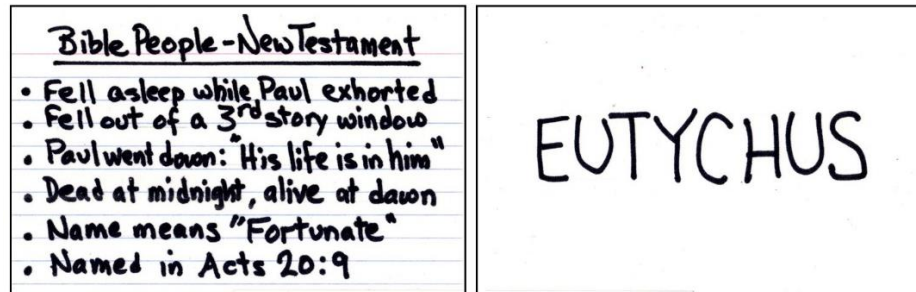 Bible People - New Testament
• Fell asleep while Paul exhorted
• Fell out of a 3rd story window
• Paul went down: "His life is in him"
• Dead at midnight, alive at dawn
• Name means "Fortunate"
• Named in Acts 20:9
EUTYCHUS